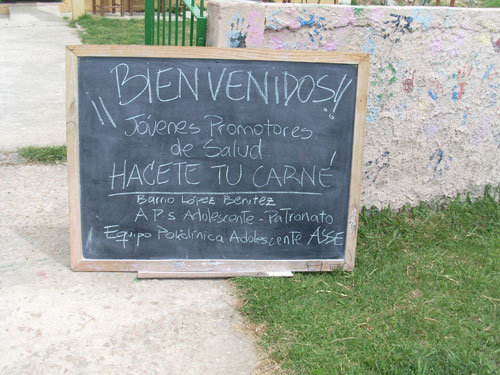 ¡¡BIENVENIDOS!!
Jóvenes Promotores
de Salud
HACETE TU CARNÉ
Barrio López Benítez
A.P.S Adolescente - Patronato
Equipo Policlínica Adolescente ASSE